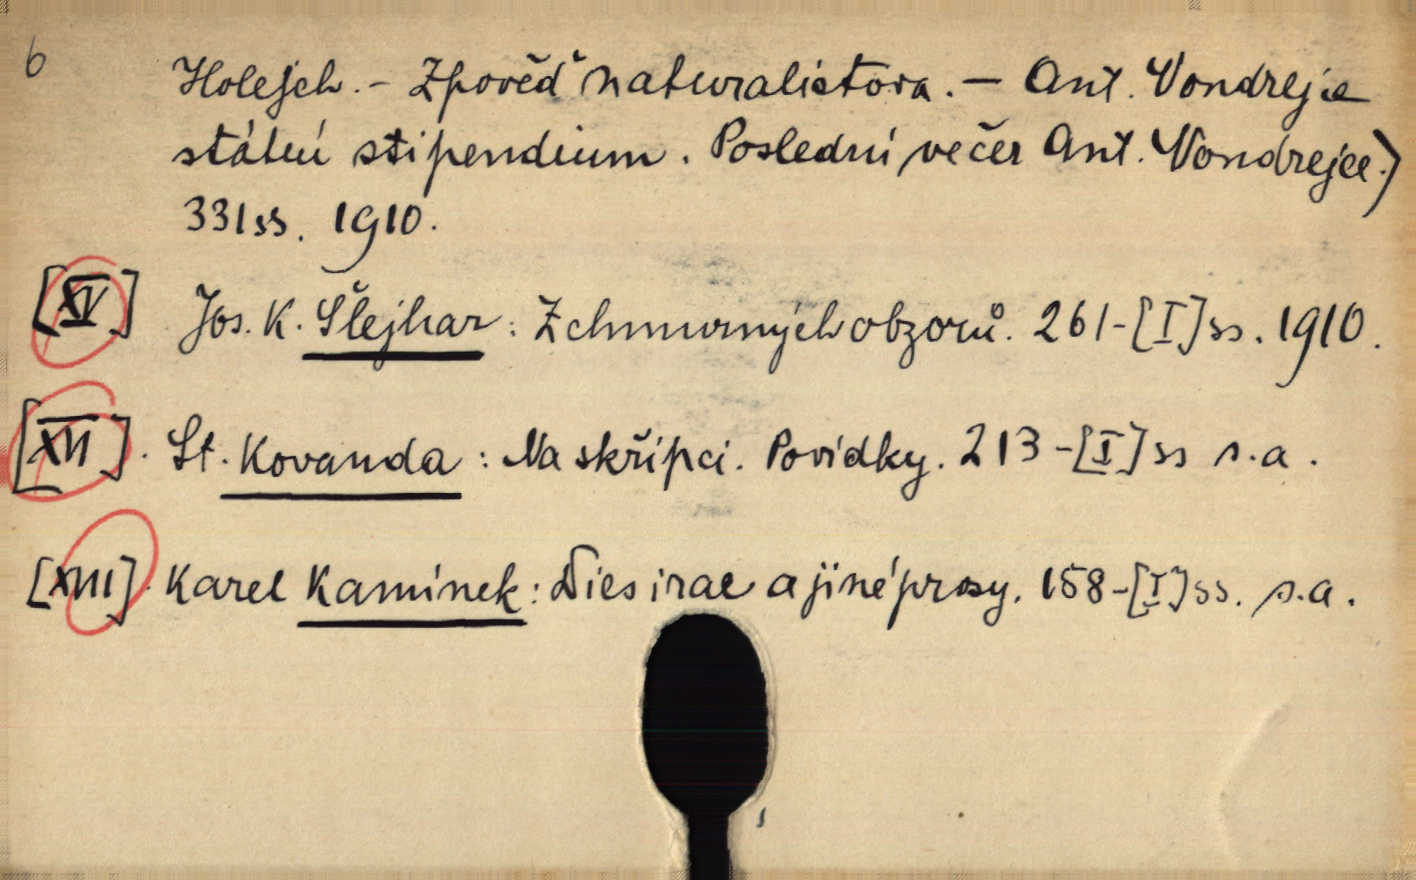 6
Holejch. – Zpověď naturalistova. – Ant. Vondrejce
státní stipendium. Poslední večer Ant. Vondrejce.)
331 ss. 1910.
[XV] Jos. K. Šlejhar: Z chmurných obzorů. 261-[I] ss. 1910.
[XVI]. St. Kovanda: Na skřipci. Povídky. 213-[I] ss s.a.
[XVIII]. Karel Kamínek: Dies irae a jiné prosy. 158-[I] ss. s.a.